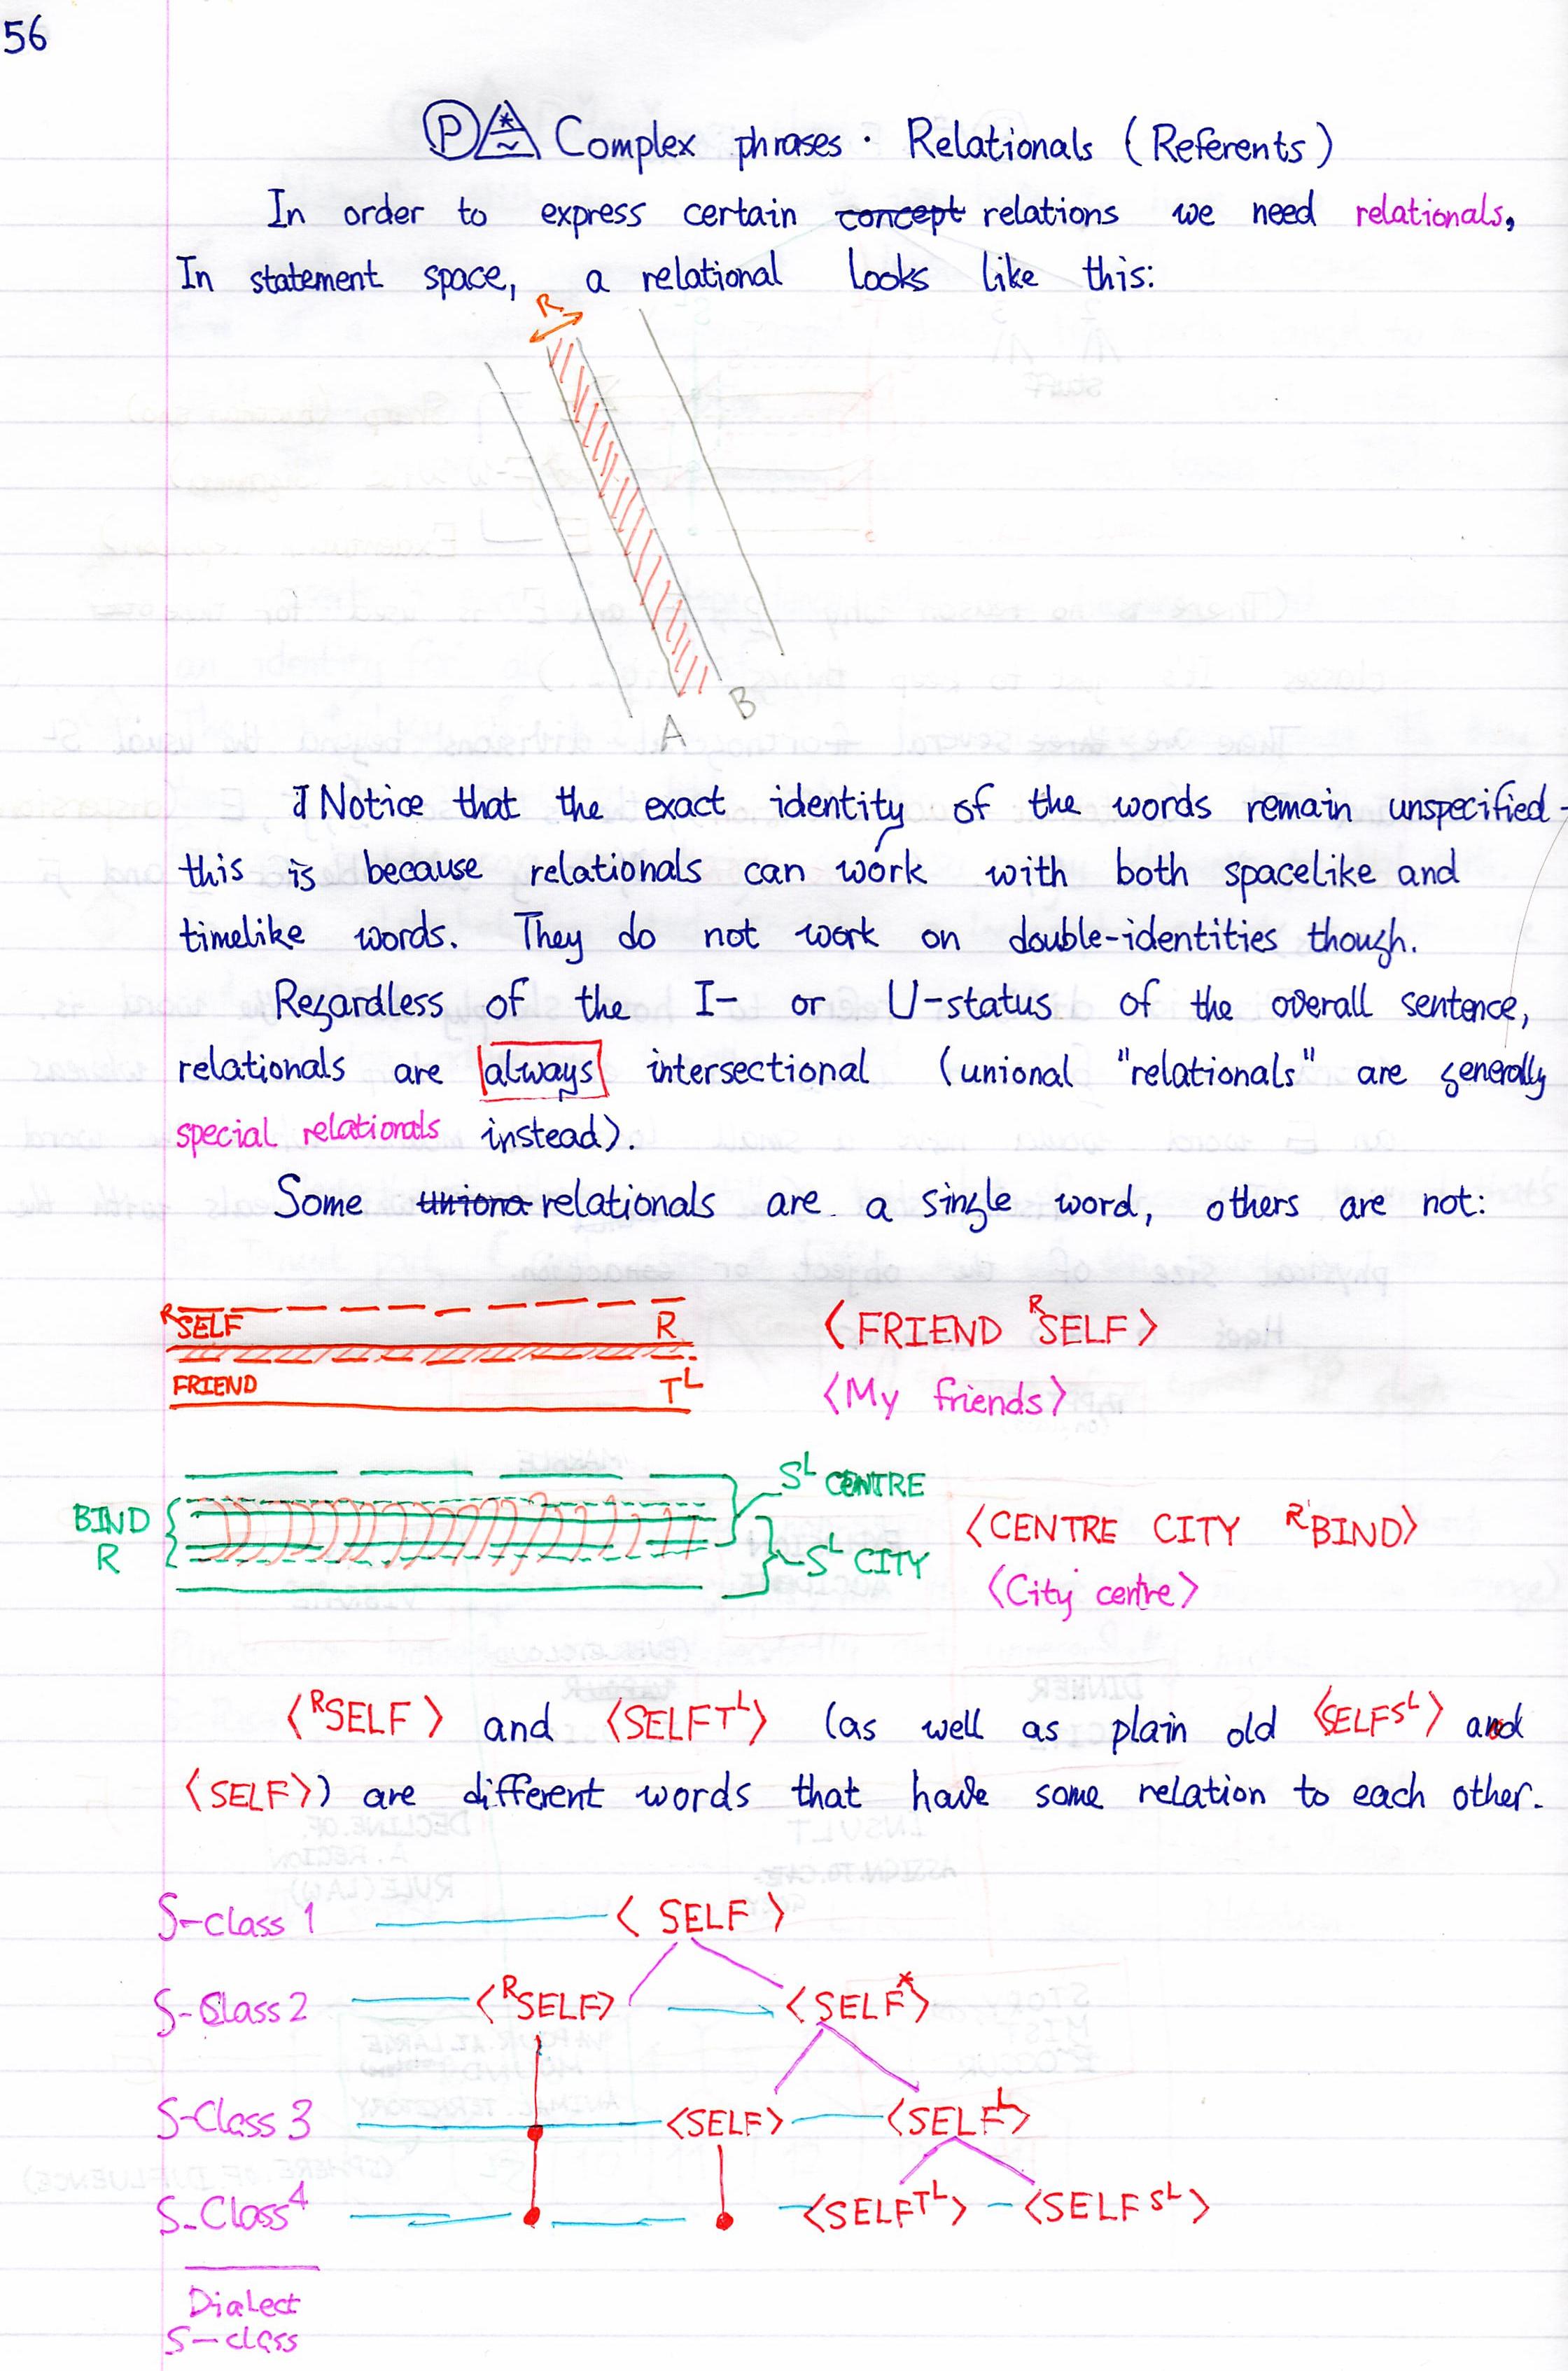 56
P * ~ Complex phrases · Relationals (Referents)
In order to express certain concept relations we need relationals,
In statement space, a relational looks like this:
R
A B
I Notice that the exact identity of the words remain unspecified -
this is because relationals can work with both spacelike and
timelike words. They do not work on double-identities though.
Regardless of the I- or U-status of the overall sentence,
relationals are always intersectional (unional "relationals" are generally
special relationals instead).
Some uniona relationals are a single word, others are not:
RSELF R
FRIEND TL
<FRIEND RSELF>
<My friends>
BIND
R
SL CENTRE
SL CITY
<CENTRE CITY RBIND>
<City centre>
<RSELF> and <SELFTL> (as well as plain old <SELFSL> and
<SELF>) are different words that have some relation to each other.
S-class 1 < SELF >
S-Class 2 <RSELF> <SELF*>
S-Class 3 <SELF> <SELFL>
S-Class 4 <SELFTL> <SELFSL>
Dialect
S-class